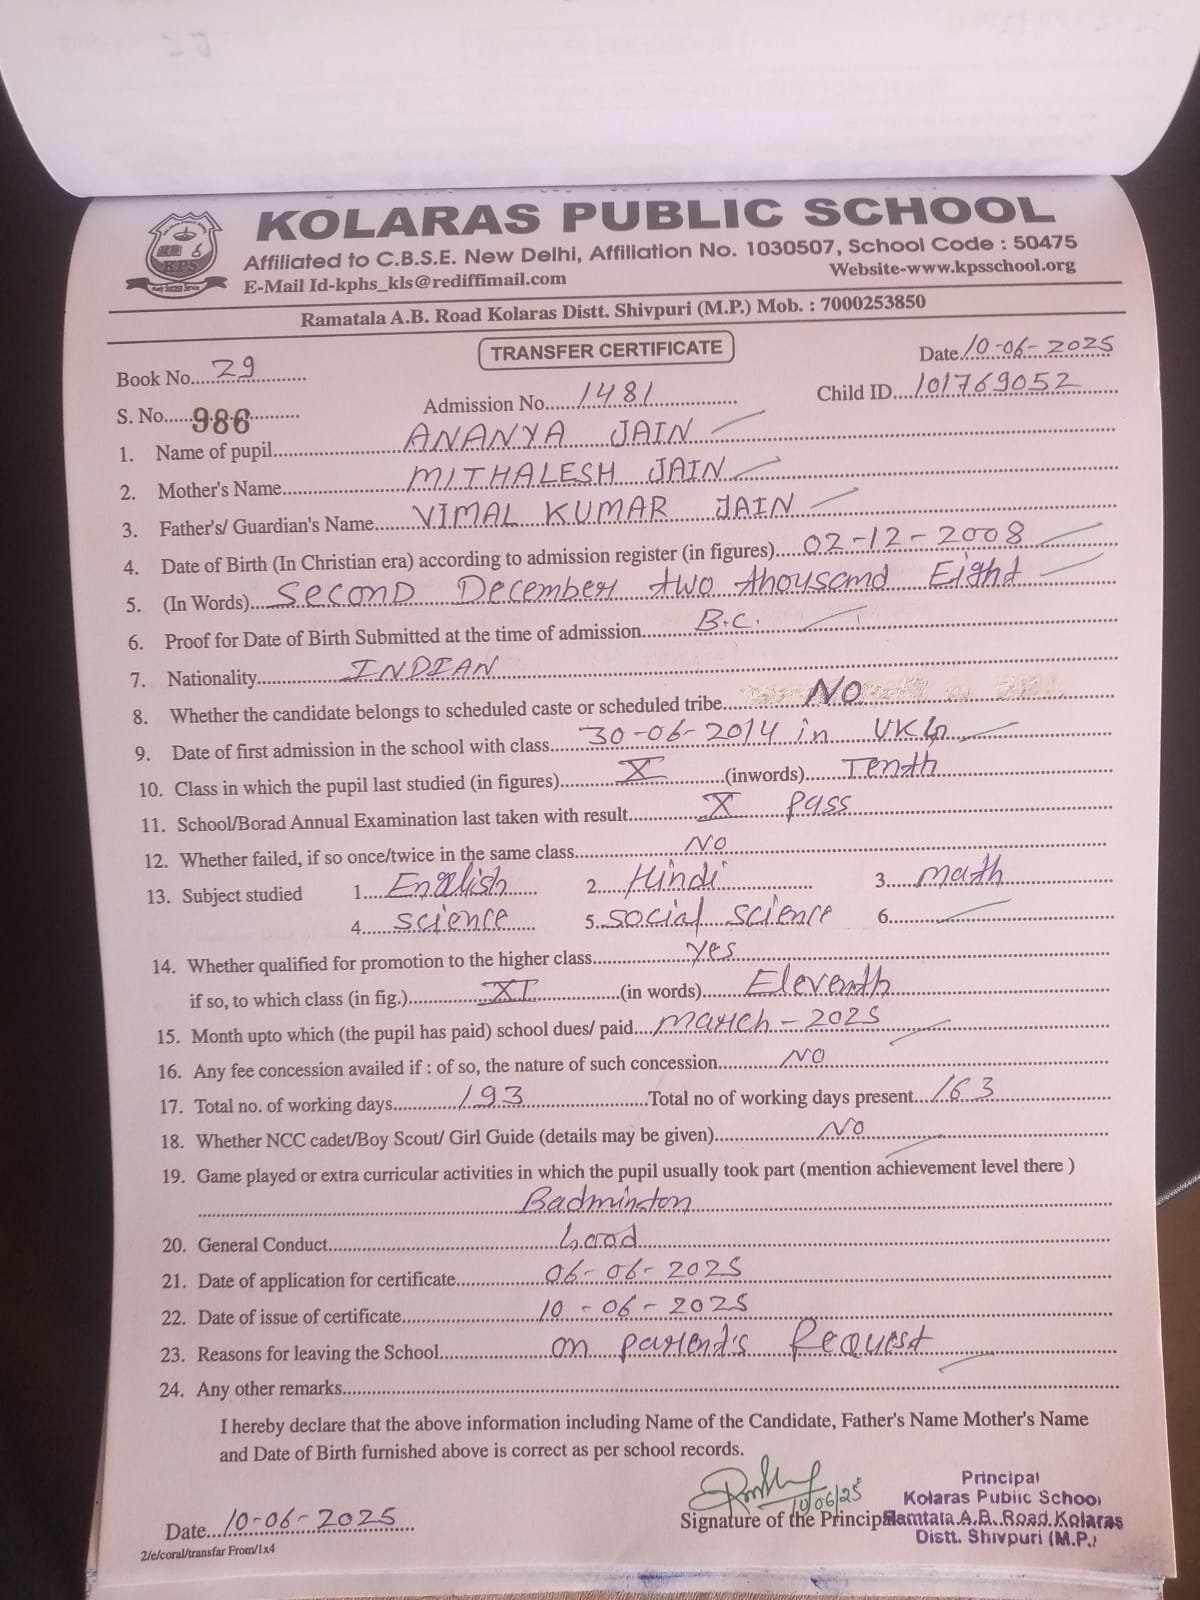 KOLARAS PUBLIC SCHOOL
Affiliated to C.B.S.E. New Delhi, Affiliation No. 1030507, School Code : 50475
E-Mail Id-kphs_kls@rediffimail.com Website-www.kpsschool.org
KPS
Ramatala A.B. Road Kolaras Distt. Shivpuri (M.P.) Mob. : 7000253850
TRANSFER CERTIFICATE
Book No. 29 Date 10-06-2025
S. No. 986 Admission No. 1481 Child ID. 101769052
1. Name of pupil ANANYA JAIN
2. Mother's Name MITHALESH JAIN
3. Father's/ Guardian's Name VIMAL KUMAR JAIN
4. Date of Birth (In Christian era) according to admission register (in figures) 02-12-2008
5. (In Words) Second December two thousand Eight
6. Proof for Date of Birth Submitted at the time of admission B.C.
7. Nationality INDIAN
8. Whether the candidate belongs to scheduled caste or scheduled tribe NO
9. Date of first admission in the school with class 30-06-2014 in UKG
10. Class in which the pupil last studied (in figures) X (inwords) Tenth
11. School/Borad Annual Examination last taken with result X Pass
12. Whether failed, if so once/twice in the same class NO
13. Subject studied 1. English 2. Hindi 3. math
4. science 5. social science 6.
14. Whether qualified for promotion to the higher class yes
if so, to which class (in fig.) XI (in words) Eleventh
15. Month upto which (the pupil has paid) school dues/ paid March-2025
16. Any fee concession availed if : of so, the nature of such concession NO
17. Total no. of working days 193 Total no of working days present 163
18. Whether NCC cadet/Boy Scout/ Girl Guide (details may be given) NO
19. Game played or extra curricular activities in which the pupil usually took part (mention achievement level there )
Badminton
20. General Conduct Good
21. Date of application for certificate 06-06-2025
22. Date of issue of certificate 10-06-2025
23. Reasons for leaving the School on parent's Request
24. Any other remarks
I hereby declare that the above information including Name of the Candidate, Father's Name Mother's Name
and Date of Birth furnished above is correct as per school records.
10/06/25
Date 10-06-2025 Signature of the Principal
Principal
Kolaras Public School
Ramtala A.B. Road Kolaras
Distt. Shivpuri (M.P.)
2/e/coral/transfar From/1x4